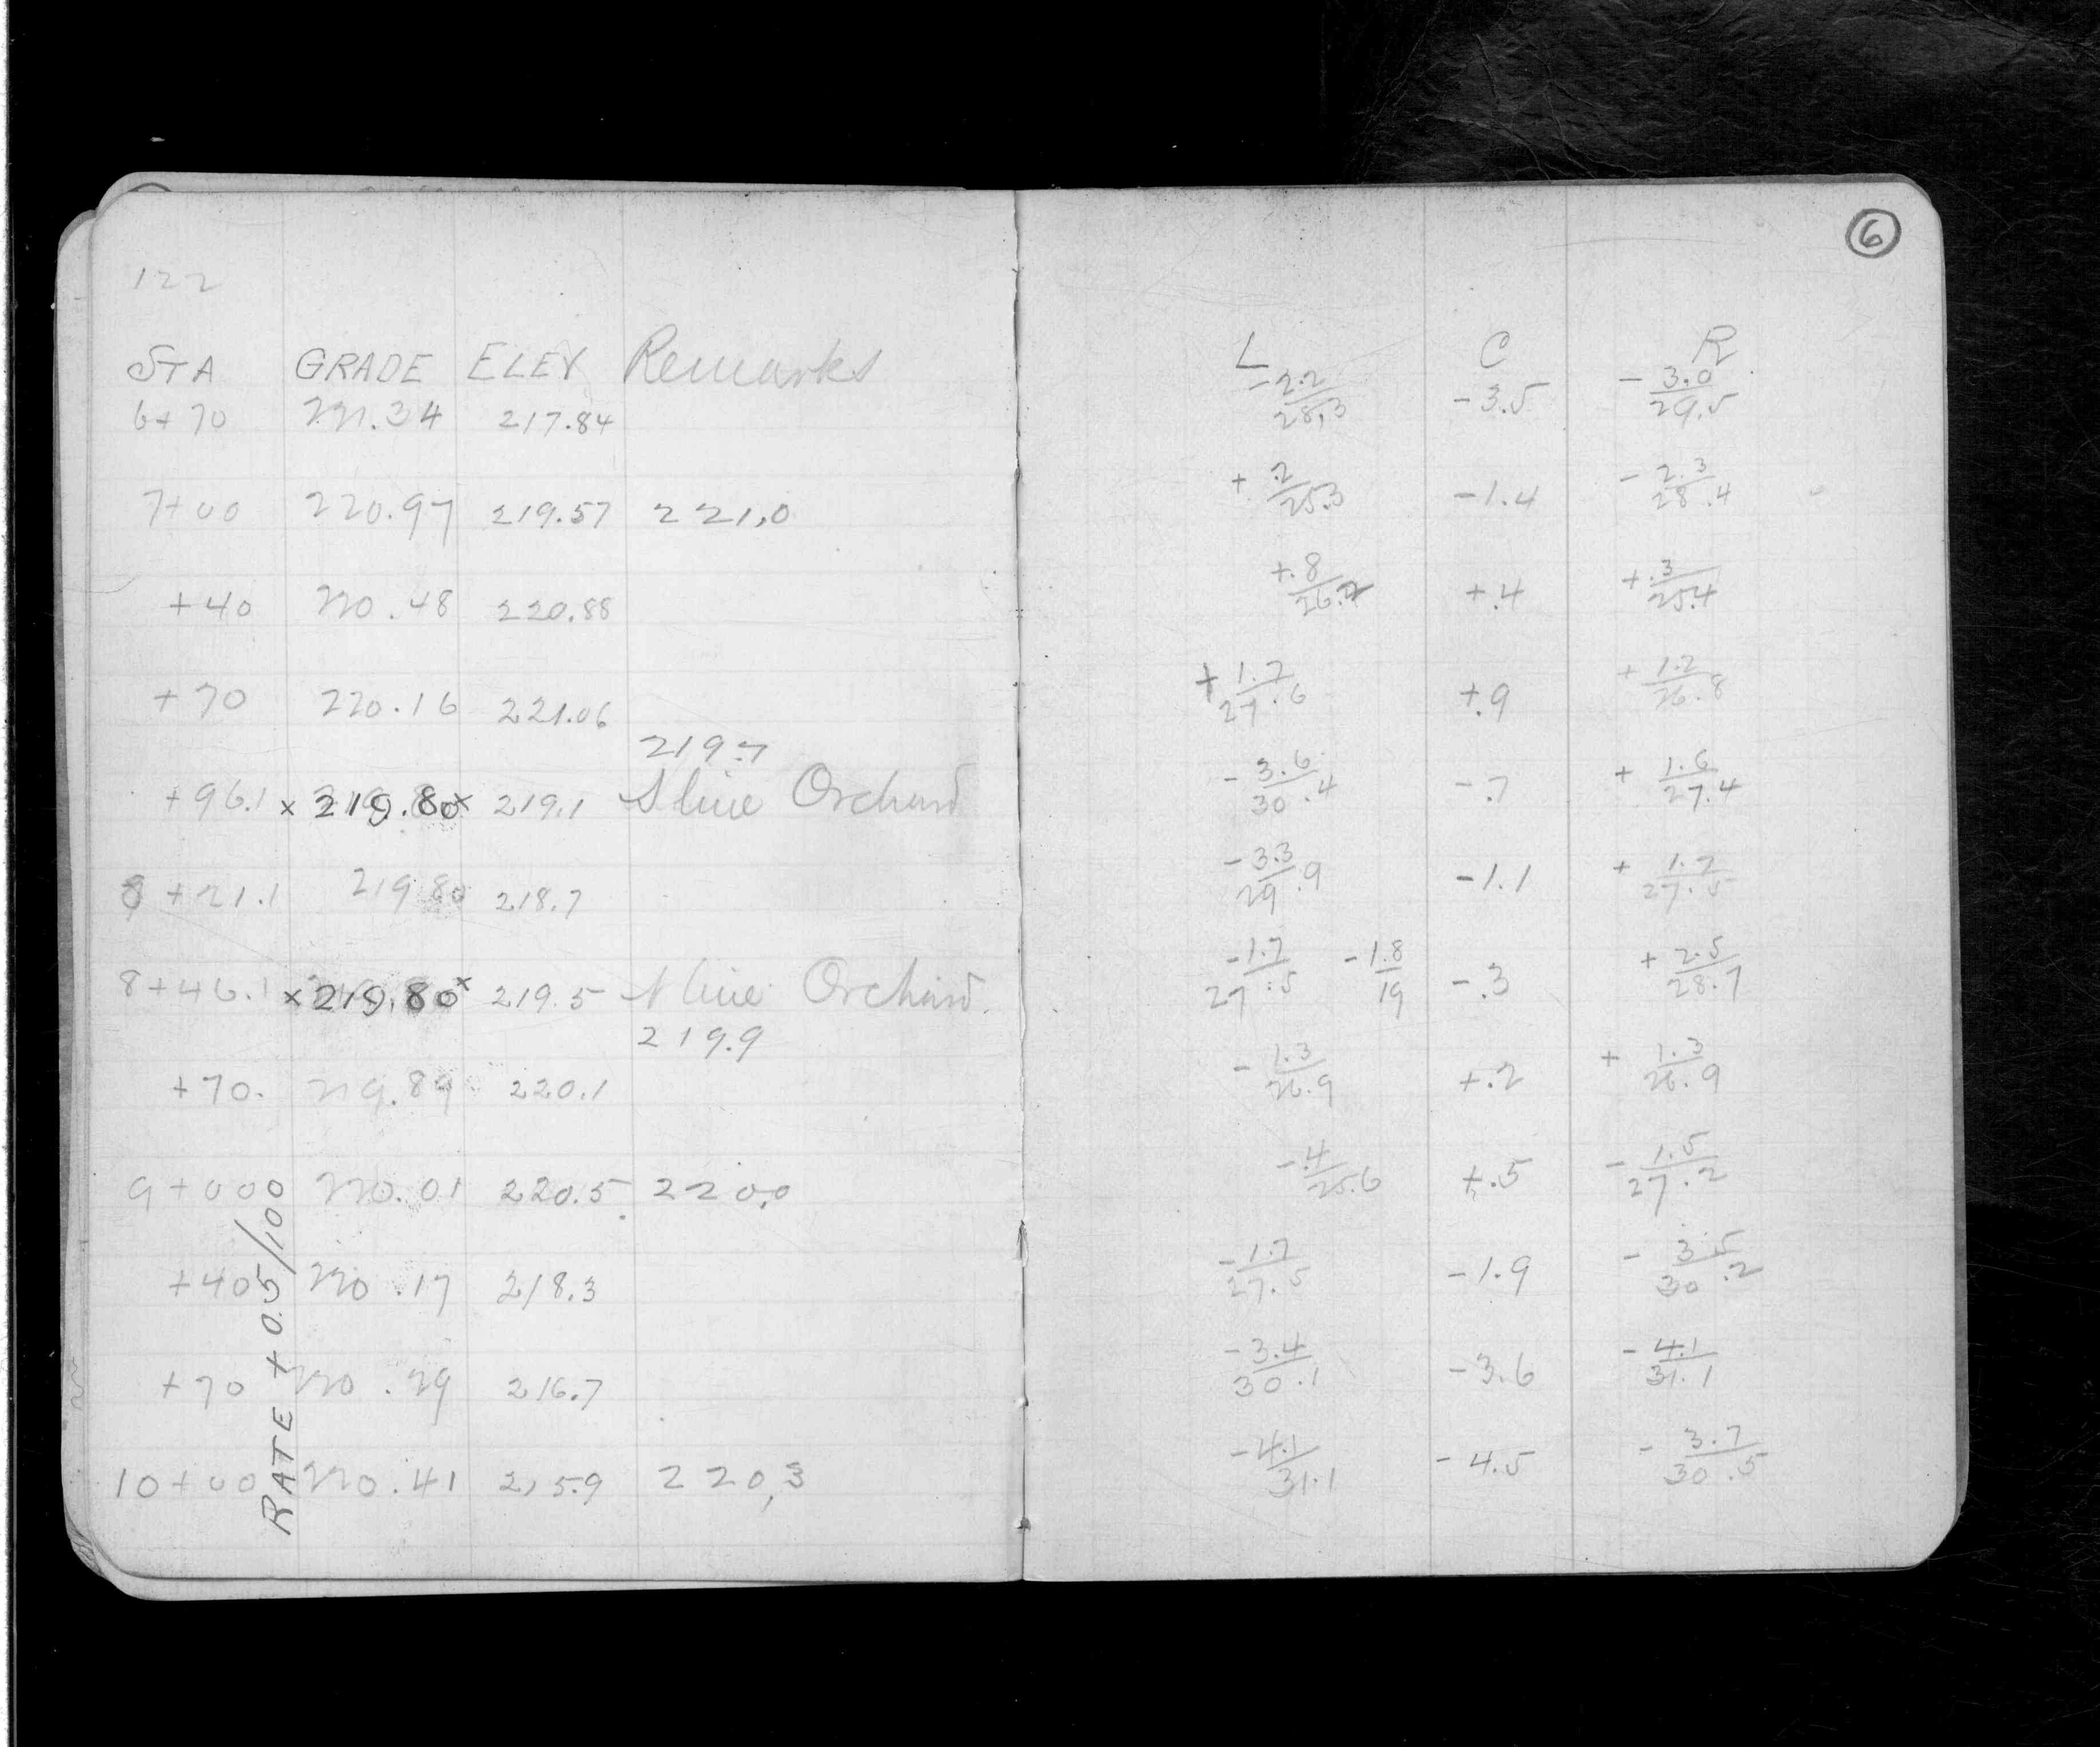 122
STA GRADE ELEV Remarks
6+70 221.34 217.84
7+00 220.97 219.57 221.0
+40 220.48 220.88
+70 220.16 221.06
219.7
+96.1 x 219.80 x 219.1 S line Orchard
8+21.1 219.80 218.7
8+46.1 x 219.80 x 219.5 N line Orchard
219.9
+70. 219.89 220.1
9+000 220.01 220.5 220.0
+40 220.17 218.3
+70 220.29 216.7
10+00 220.41 215.9 220.3
RATE + 0.5/100
6
L C R
-2.2/28.3 -3.5 -3.0/29.5
+.2/25.3 -1.4 -2.3/28.4
+.8/26.2 +.4 +.3/25.4
+1.7/27.6 +.9 +1.2/26.8
-3.6/30.4 -.7 +1.6/27.4
-3.3/29.9 -1.1 +1.7/27.5
-1.7/27.5 -1.8/19 -.3 +2.5/28.7
-1.3/26.9 +.2 +1.3/26.9
-.4/25.6 +.5 -1.5/27.2
-1.7/27.5 -1.9 -3.5/30.2
-3.4/30.1 -3.6 -4.1/31.1
-4.1/31.1 -4.5 -3.7/30.5